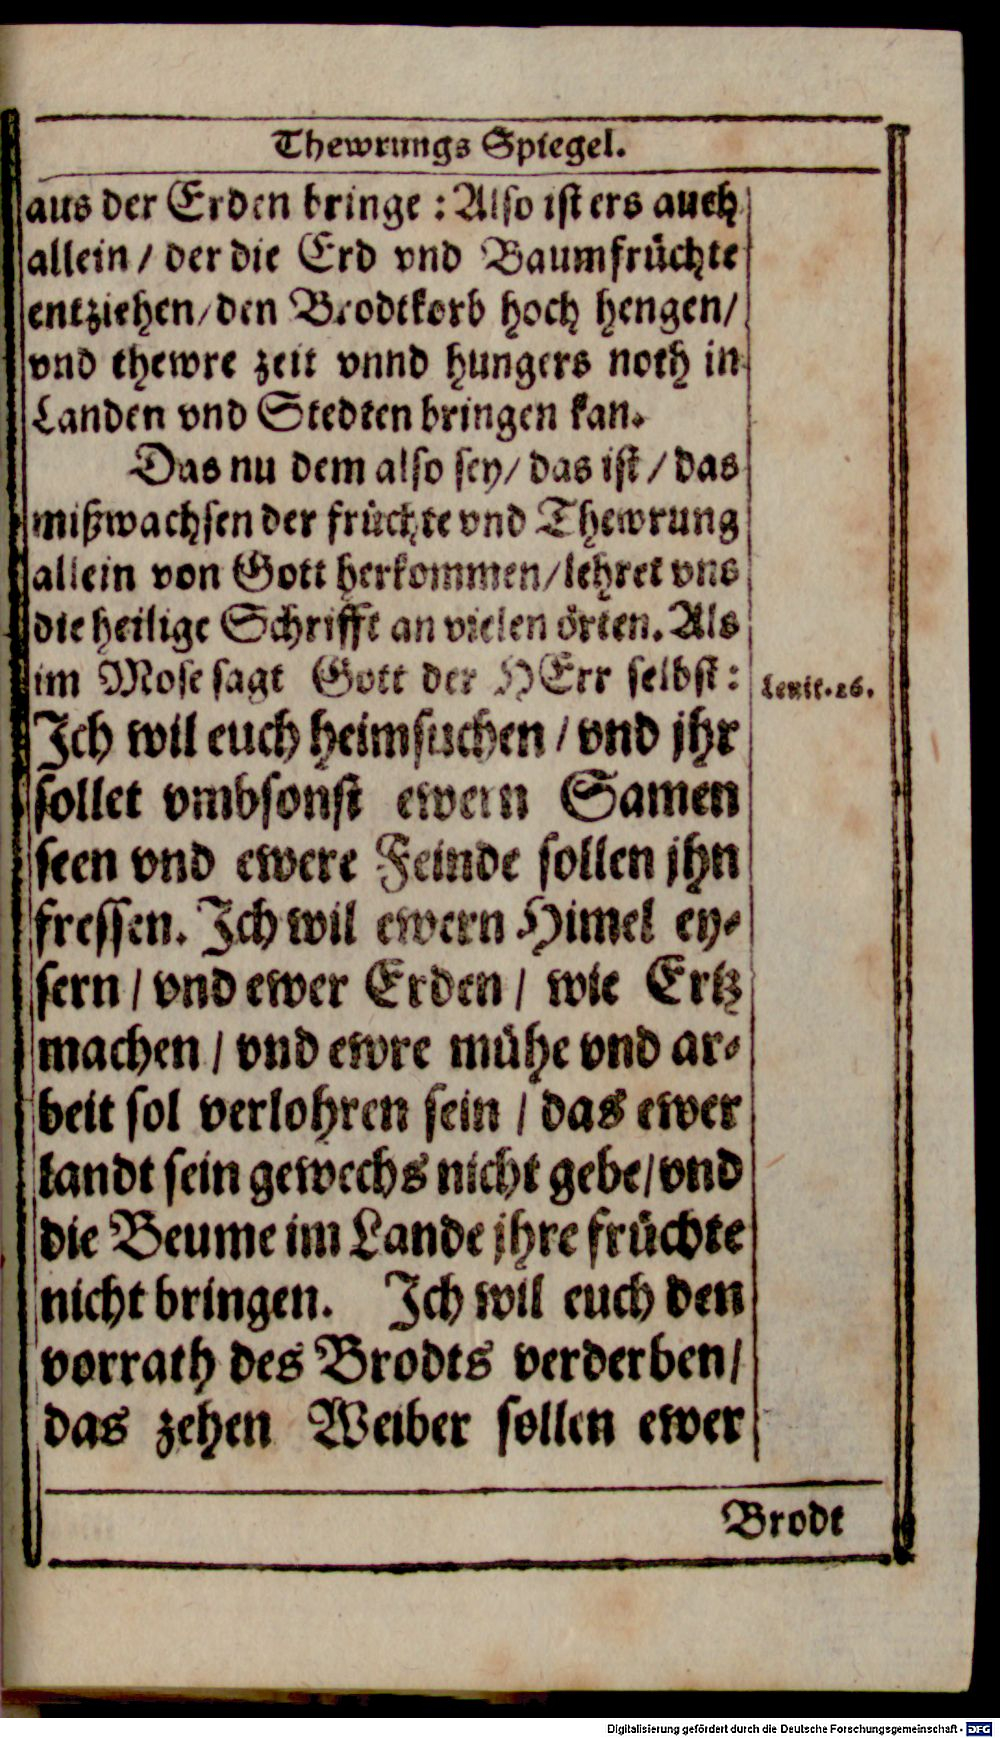 Thewrungs Spiegel.
aus der Erden bringe : Also ist ers auch
allein / der die Erd vnd Baumfrüchte
entziehen / den Brodtkorb hoch hengen /
vnd thewre zeit vnnd hungers noth in
Landen vnd Stedten bringen kan.
Das nu dem also sey / das ist / das
mißwachsen der früchte vnd Thewrung
allein von Gott herkommen / lehret vns
die heilige Schrifft an vielen örten. Als
im Mose sagt Gott der HErr selbst :
Levit. 26.
Ich wil euch heimsuchen / vnd jhr
sollet vmbsonst ewern Samen
seen vnd ewere Feinde sollen jhn
fressen. Ich wil ewern Himel ey-
sern / vnd ewer Erden / wie Ertz
machen / vnd ewre mühe vnd ar-
beit sol verlohren sein / das ewer
landt sein gewechs nicht gebe / vnd
die Beume im Lande jhre früchte
nicht bringen. Ich wil euch den
vorrath des Brodts verderben /
das zehen Weiber sollen ewer
Brodt
Digitalisierung gefördert durch die Deutsche Forschungsgemeinschaft - DFG